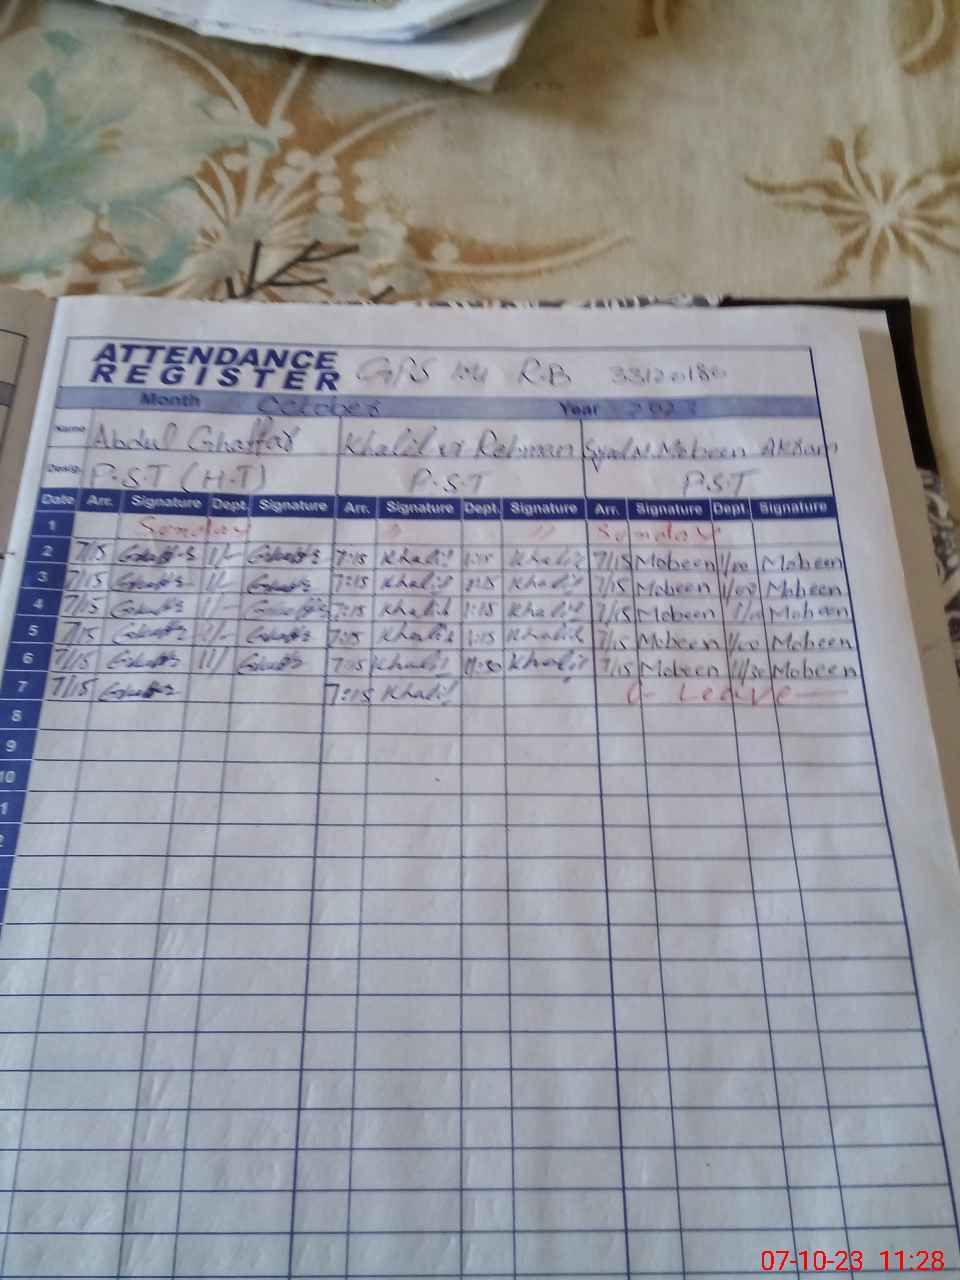 ATTENDANCE
REGISTER GPS R.B 33120180
Month October Year 2023
Name Abdul Ghaffar Khalil ur Rehman Syed M. Mobeen Akram
Desig. P.S.T (H.T) P.S.T P.S.T
Date Arr. Signature Dept. Signature Arr. Signature Dept. Signature Arr. Signature Dept. Signature
1 Sunday " " Sunday
2 7/15 1/- 7:15 Khalil 1:15 Khalil 7/15 Mobeen 1/00 Mobeen
3 7/15 1/- 7:15 Khalil 1:15 Khalil 7/15 Mobeen 1/00 Mobeen
4 7/15 1/- 7:15 Khalil 1:15 Khalil 7/15 Mobeen Mobeen
5 7/15 1/- 7:15 Khalil 1:15 Khalil 7/15 Mobeen 1/00 Mobeen
6 7/15 11/ 7:15 Khalil 11:30 Khalil 7/15 Mobeen 11/30 Mobeen
7 7/15 7:15 Khalil Leave
8
9
10
07-10-23 11:28